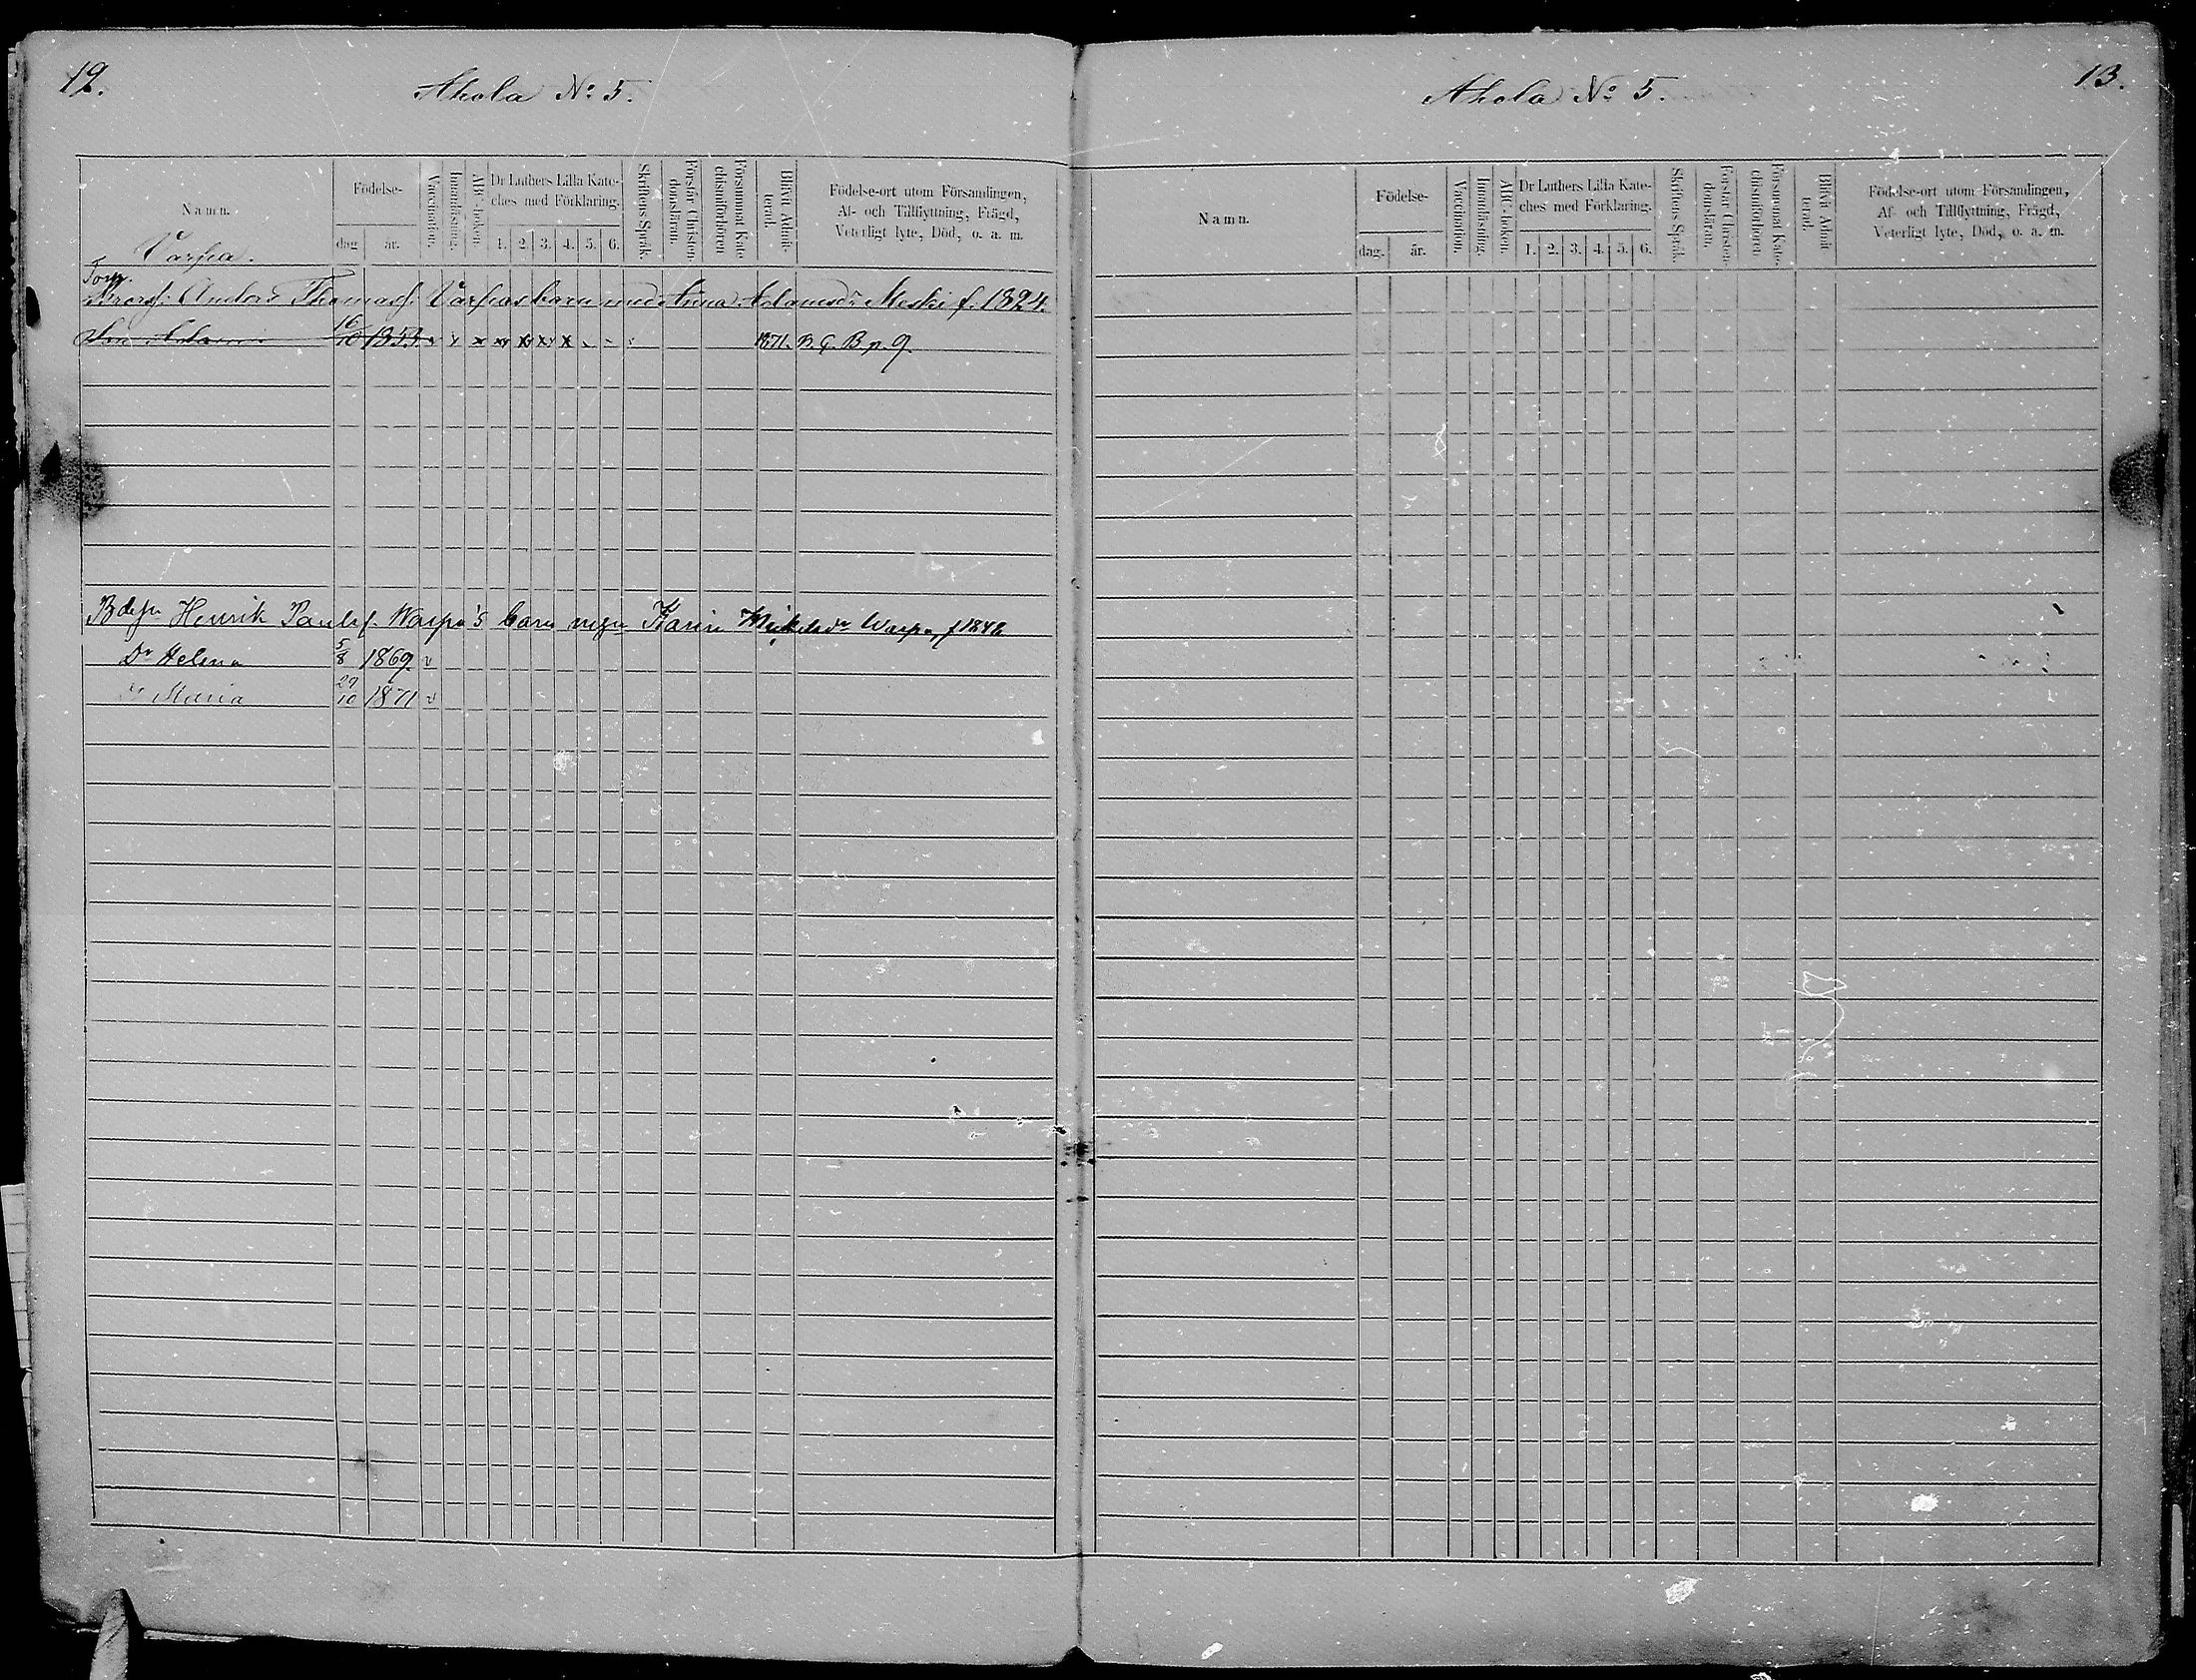 12.
Ahola No 5.
Namn.
Födelse-
dag
år.
Vaccination.
Innanläsning.
ABC-boken.
Dr Luthers Lilla Kate-
ches med Förklaring.
1. 2. 3. 4. 5. 6.
Skriftens Språk.
Förstår Christen-
domsläran.
Försummat Kate
chismiförhören
Blifvit Admit-
terad.
Födelse-ort utom Församlingen,
Af- och Tillflyttning, Frägd,
Veterligt lyte, Död, o. a. m.
Varpa.
Torp.
Anders Thomasf. Varpas barn med Anna Adamsdr Meski f. 1824.
Son Adam 16/10 1853 v v x xv xv xv x 1871. B. p. 9.
Bdesn Henrik Paulsf. Warpa's barn m. Karin Mickelsdr Warpa, f 1842
Dr Helena 5/8 1869 v
Dr Maria 27/10 1871 v
13.
Ahola No 5.
Namn.
Födelse-
dag.
år.
Vaccination.
Innanläsning.
ABC-boken.
Dr Luthers Lilla Kate-
ches med Förklaring.
1. 2. 3. 4. 5. 6.
Skriftens Språk.
Förstår Christen-
domsläran.
Försummat Kate-
chismiförhören
Blifvit Admit
terad.
Födelse-ort utom Församlingen,
Af- och Tillflyttning, Frägd,
Veterligt lyte, Död, o. a. m.